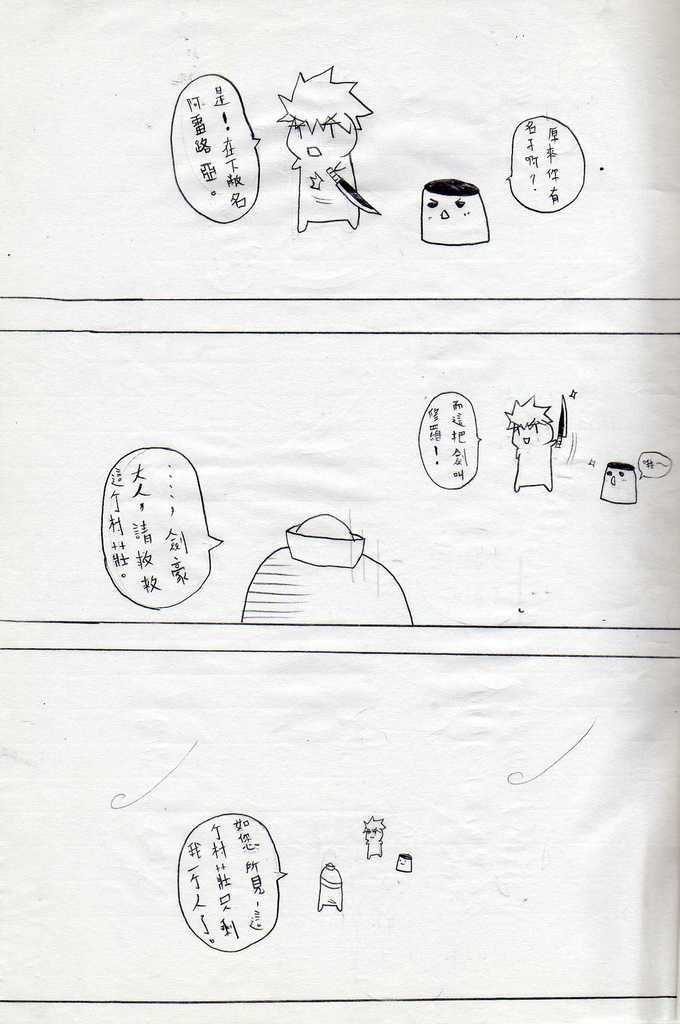 原來你有
名子啊？
是！在下敝名
阿雷路亞。
啦～
而這把劍叫
修羅！
……，劍豪
大人，請救救
這个村莊。
如您所見，這
个村莊只剩
我一个人了。